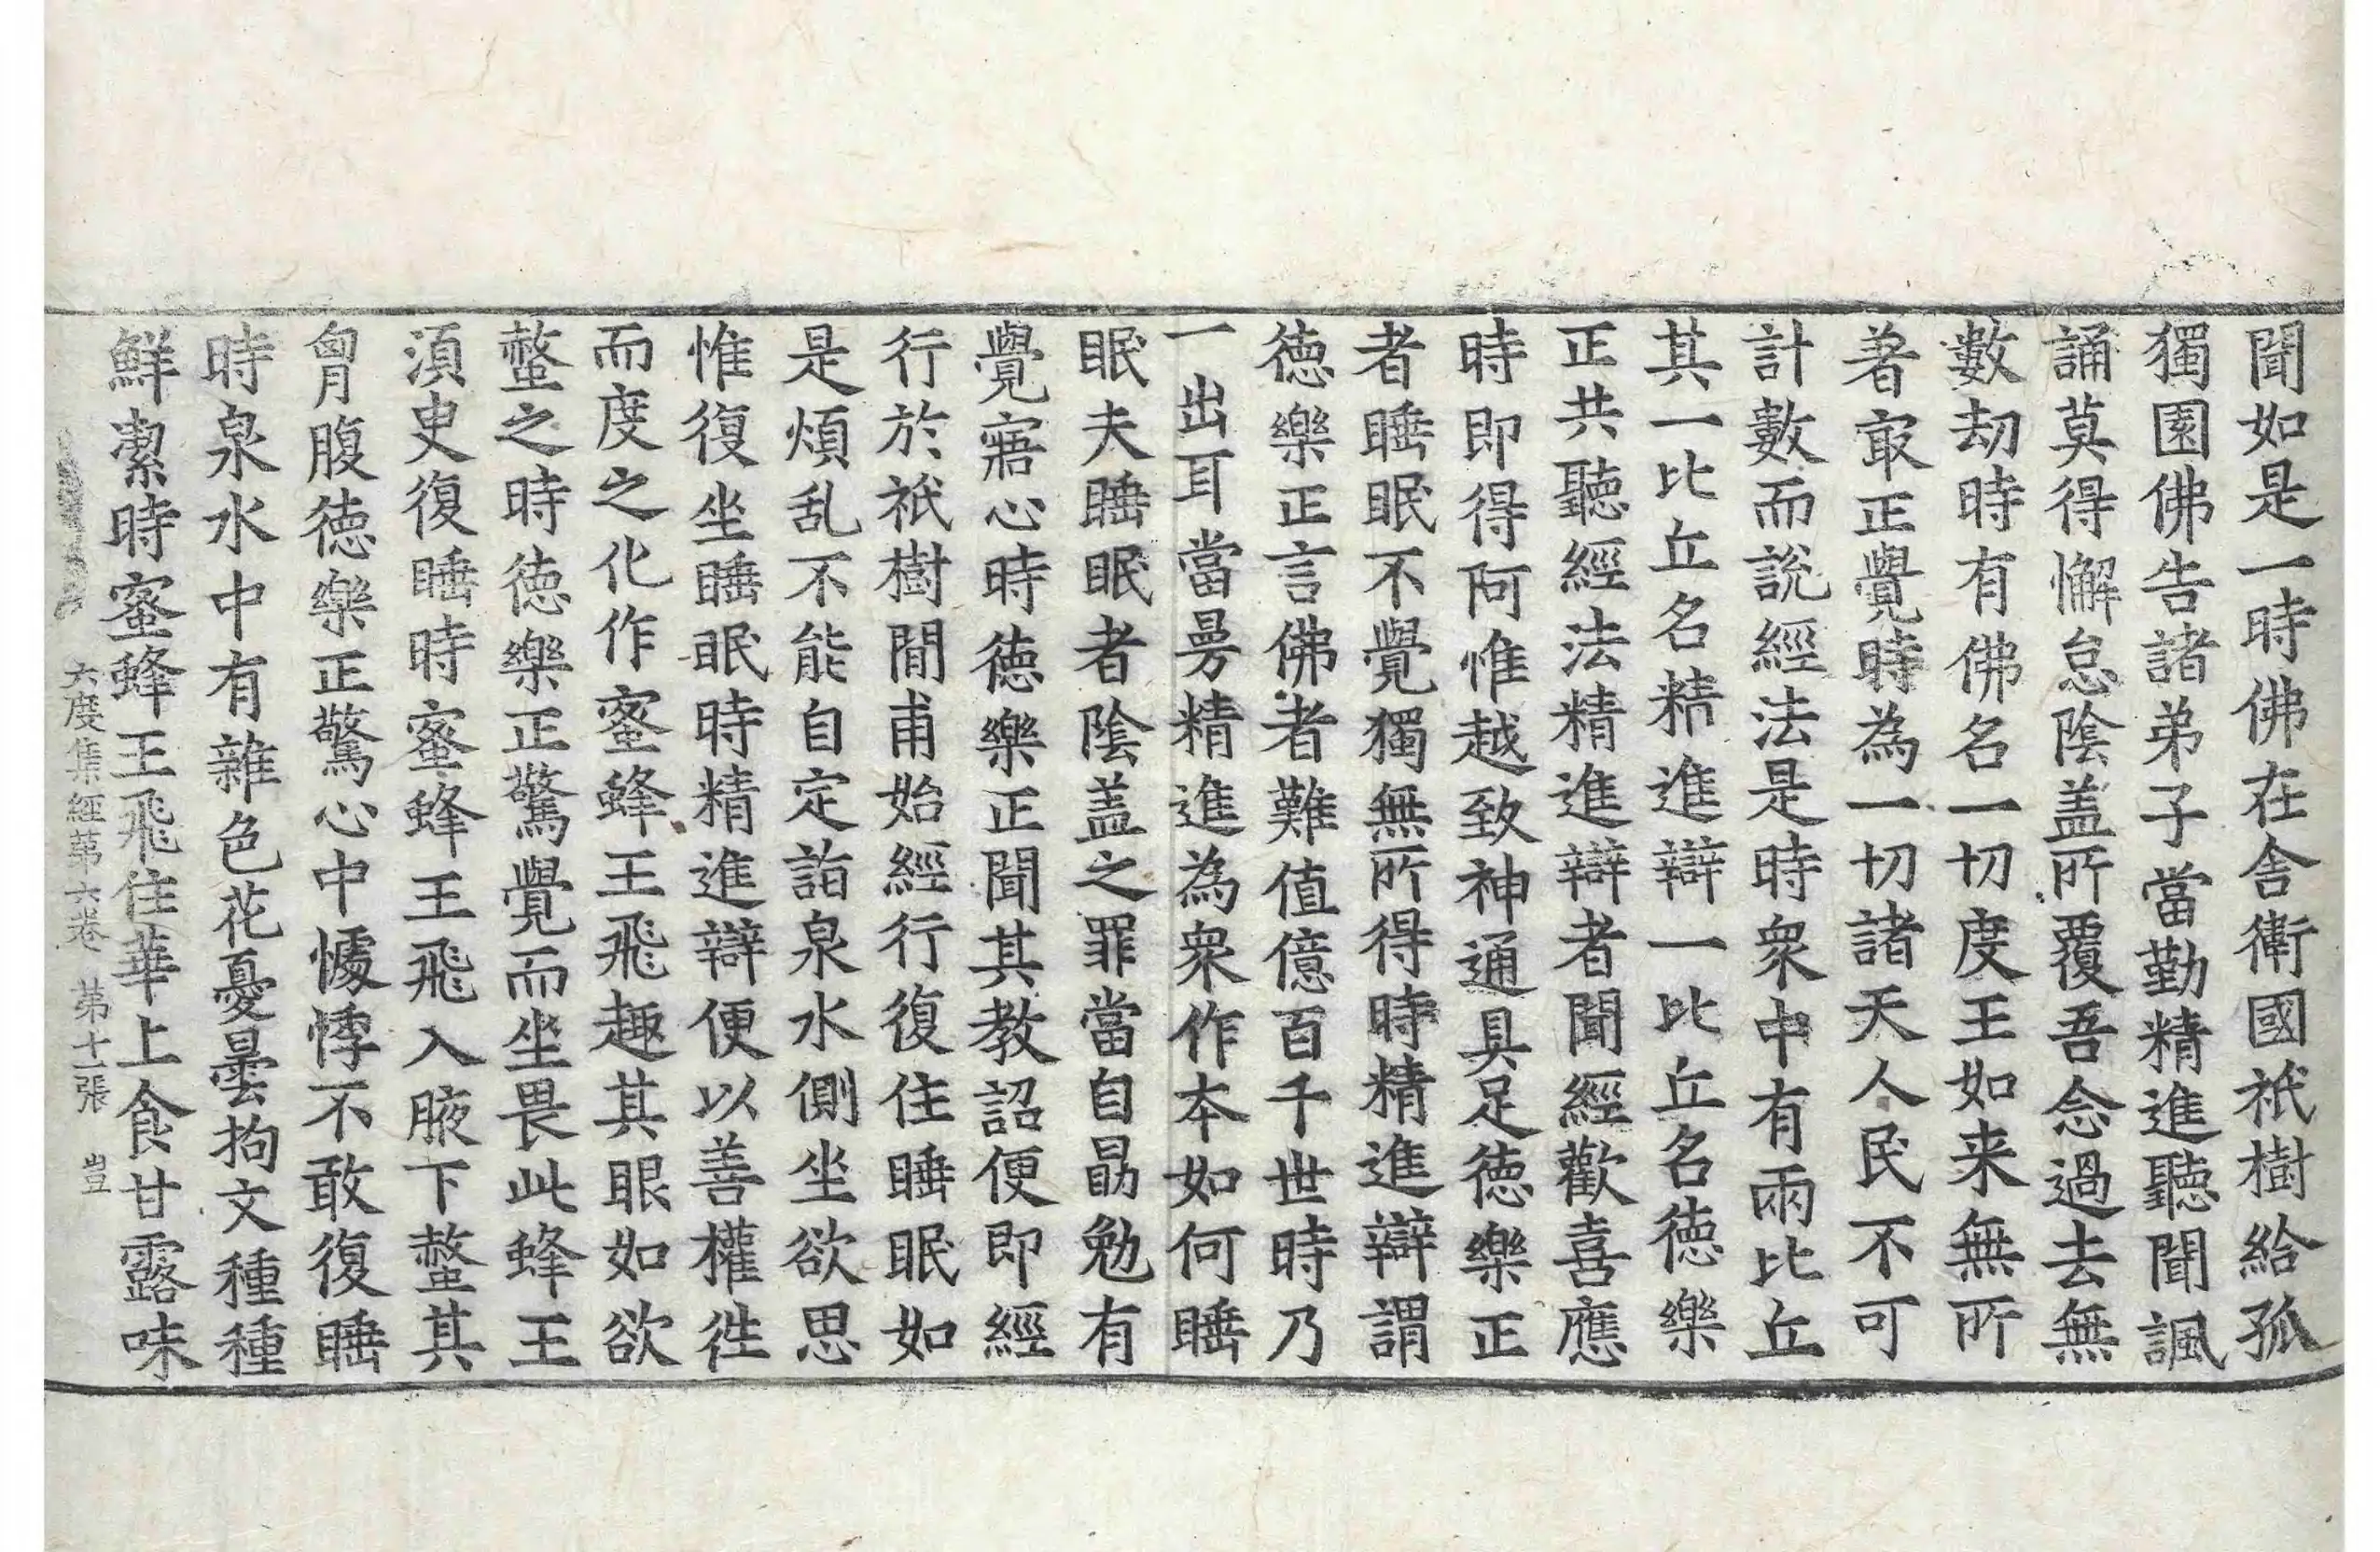 聞如是一時佛在舎衛國祇樹給孤
獨園佛告諸弟子當勤精進聽聞諷
誦莫得懈怠陰盖所覆吾念過去無
數劫時有佛名一切度王如来無所
著㝡正覺時為一切諸天人民不可
計數而說經法是時衆中有兩比丘
其一比丘名精進辯一比丘名徳樂
正共聽經法精進辯者聞經歡喜應
時即得阿惟越致神通具足徳樂正
者睡眠不覺獨無所得時精進辯謂
徳樂正言佛者難值億百千世時乃
一出耳當曼精進為衆作本如何睡
眠夫睡眠者陰盖之罪當自勗勉有
覺寤心時徳樂正聞其教詔便即經
行於祇樹間甫始經行復住睡眠如
是煩乱不能自定詣泉水側坐欲思
惟復坐睡眠時精進辯便以善權徃
而度之化作蜜蜂王飛趣其眼如欲
螫之時徳樂正驚覺而坐畏此蜂王
湏臾復睡時蜜蜂王飛入腋下螫其
胷腹徳樂正驚心中懅悸不敢復睡
時泉水中有雜色花憂曇拘文種種
鮮潔時蜜蜂王飛住華上食甘露味
六度集經苐六卷　苐十一張　豈